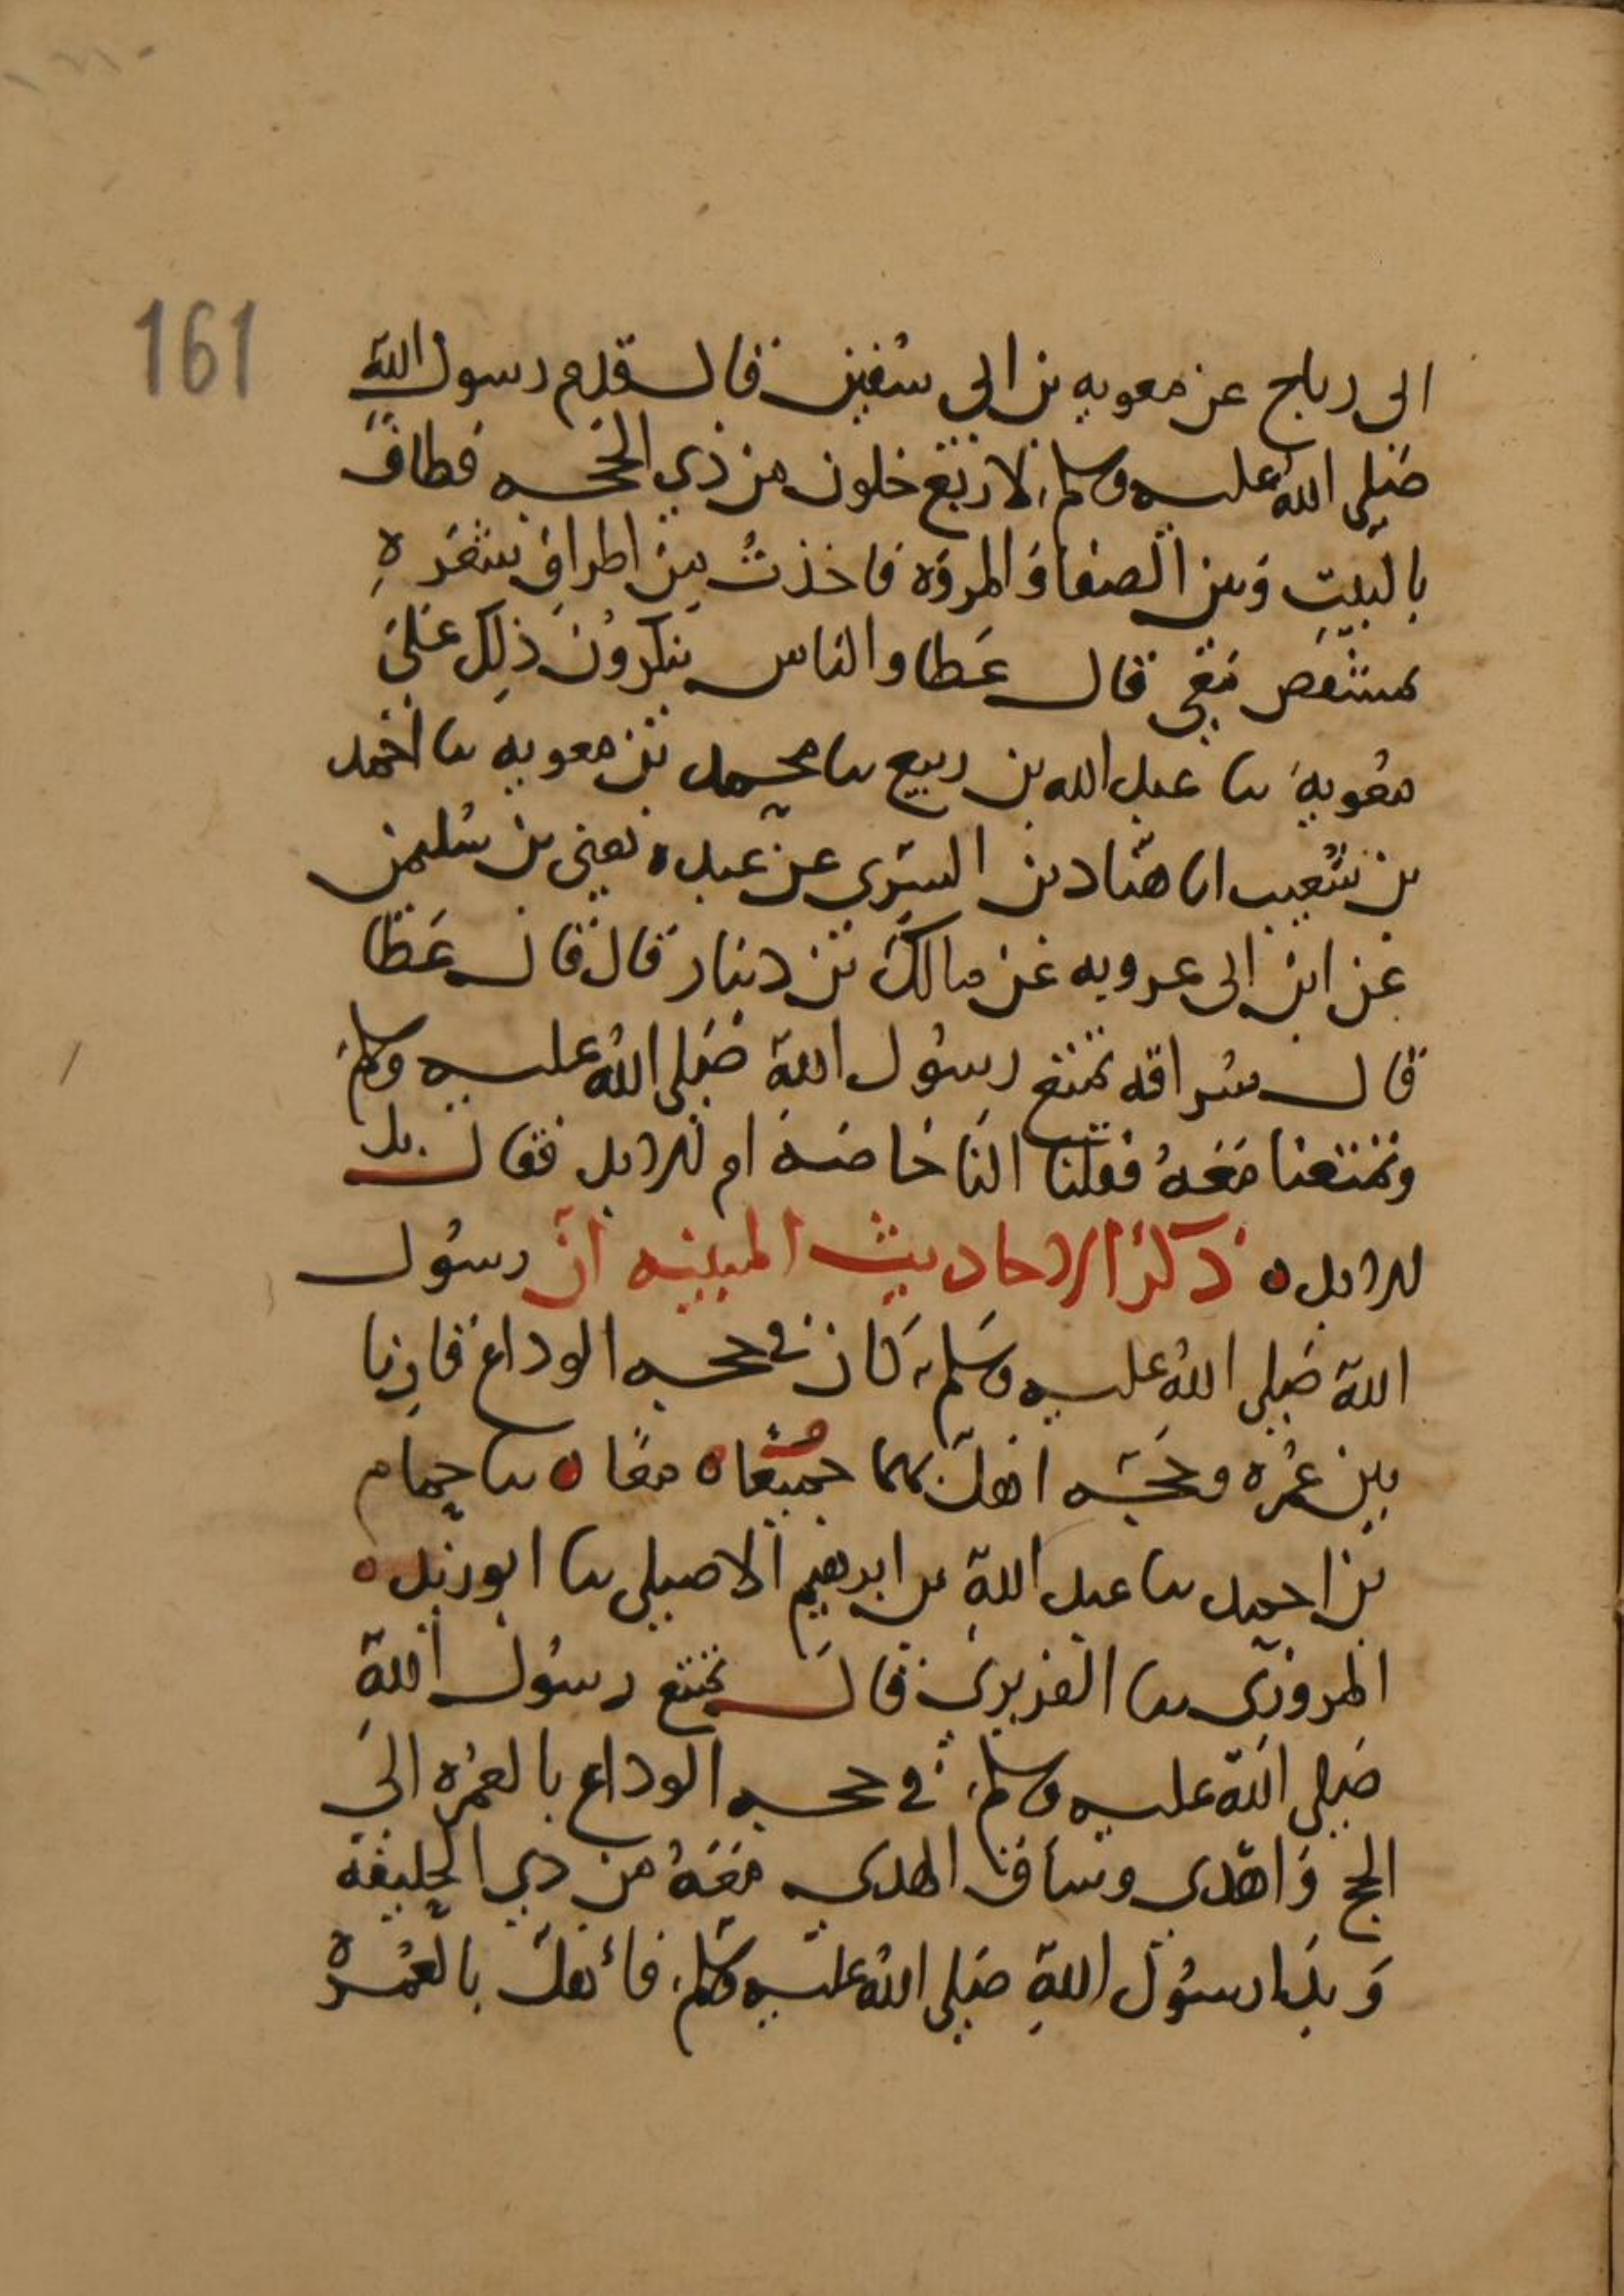 161
ابى رباح عن معويه بن ابى سفين قال قدم رسول الله
صَلى اللهُ عليه وسلم لاربَع خلون من ذي الحجه فطافَ
بالبيتِ وَبين الصفا وَالمروَه فاخذتُ مِن اطرافِ شعَرهِ
بمشقص مَعِي قال عَطا والناس ينكروُنَ ذلِك عَلىَ
معُويهَ ىا عبد الله بن ربيع ىا محمد بن معويه ىا احَمد
بن شُعيب انا هنّاد بن السَّري عن عَبده يعنى بن سُليمن
عَن ابن ابى عروبه عَن مالك بن دينار قال قال عَطا
قال سُراقه تمتع رسوُل اللهِ صَلى اللهُ عليه وسلم
وتمتعنا مَعَهُ فقلنا النَا خاصَهً ام للابد فقال بل
للابد ه ذكرُ الاحاديث المبينه انّ رسوُل
اللهِ صَلى اللهُ عليه وسَلم كَان في حجه الوداعَ قارِنا
بين عُمْره وحَجَّه اهلّ بهما جميعًا ه معًا ه ىا حِمام
بن احمد ىا عبد اللهِ بن ابرهيم الاصيلى ىا ابو زيد
المروَزىّ ىا الفربري قال تمتع رسوُل اللهِ
صَلى اللهُ عليه وسلم في حجه الوداع بالعُمْره الىَ
الحج وَاهَدى وسَاق الهدى معَهُ من ذي الحليفه
وَبدَا رسوُل اللهِ صَلى اللهُ عليه وسلم فأهلّ بالعُمره